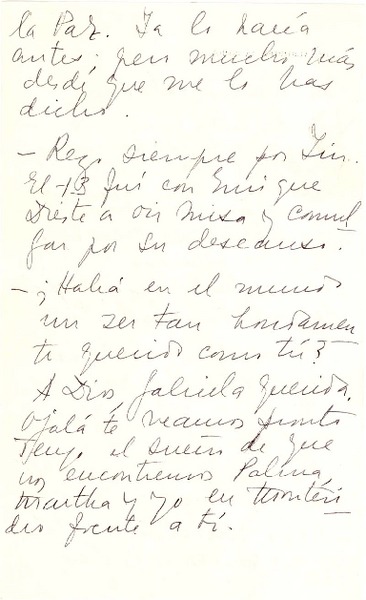 la Paz. Ya lo hacía
antes; pero mucho más
desde que me lo has
dicho.
– Rezo siempre por Yin.
El 13 fuí con Enrique
Dieste a oir misa y comul
gar por su descanso.
– ¿Habrá en el mundo
un ser tan hondamen
te querido como tú?
A Dios, Gabriela querida.
Ojalá te veamos pronto
Tengo el sueño de que
nos encontremos Palma,
Martha y yo en Montevi
deo frente a tí.